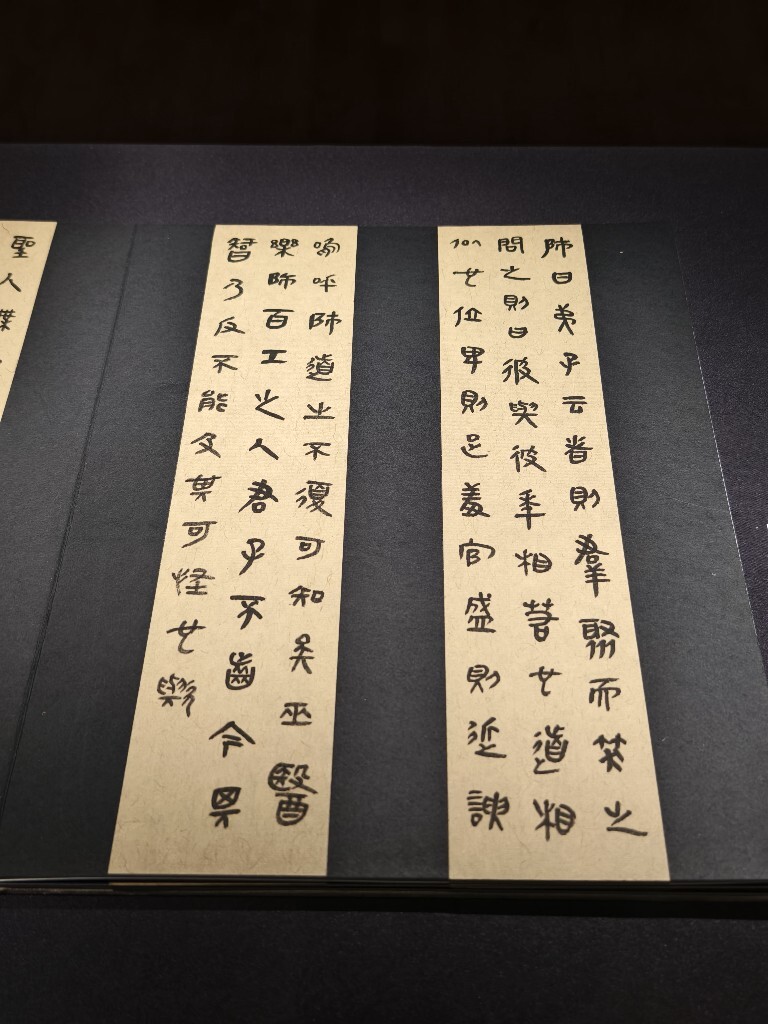 師曰弟子云者則羣聚而笑之
問之則曰彼與彼年相若也道相
似也位卑則足羞官盛則近諛
嗚呼師道之不復可知矣巫醫
樂師百工之人君子不齒今其
智乃反不能及其可怪也歟
聖人無